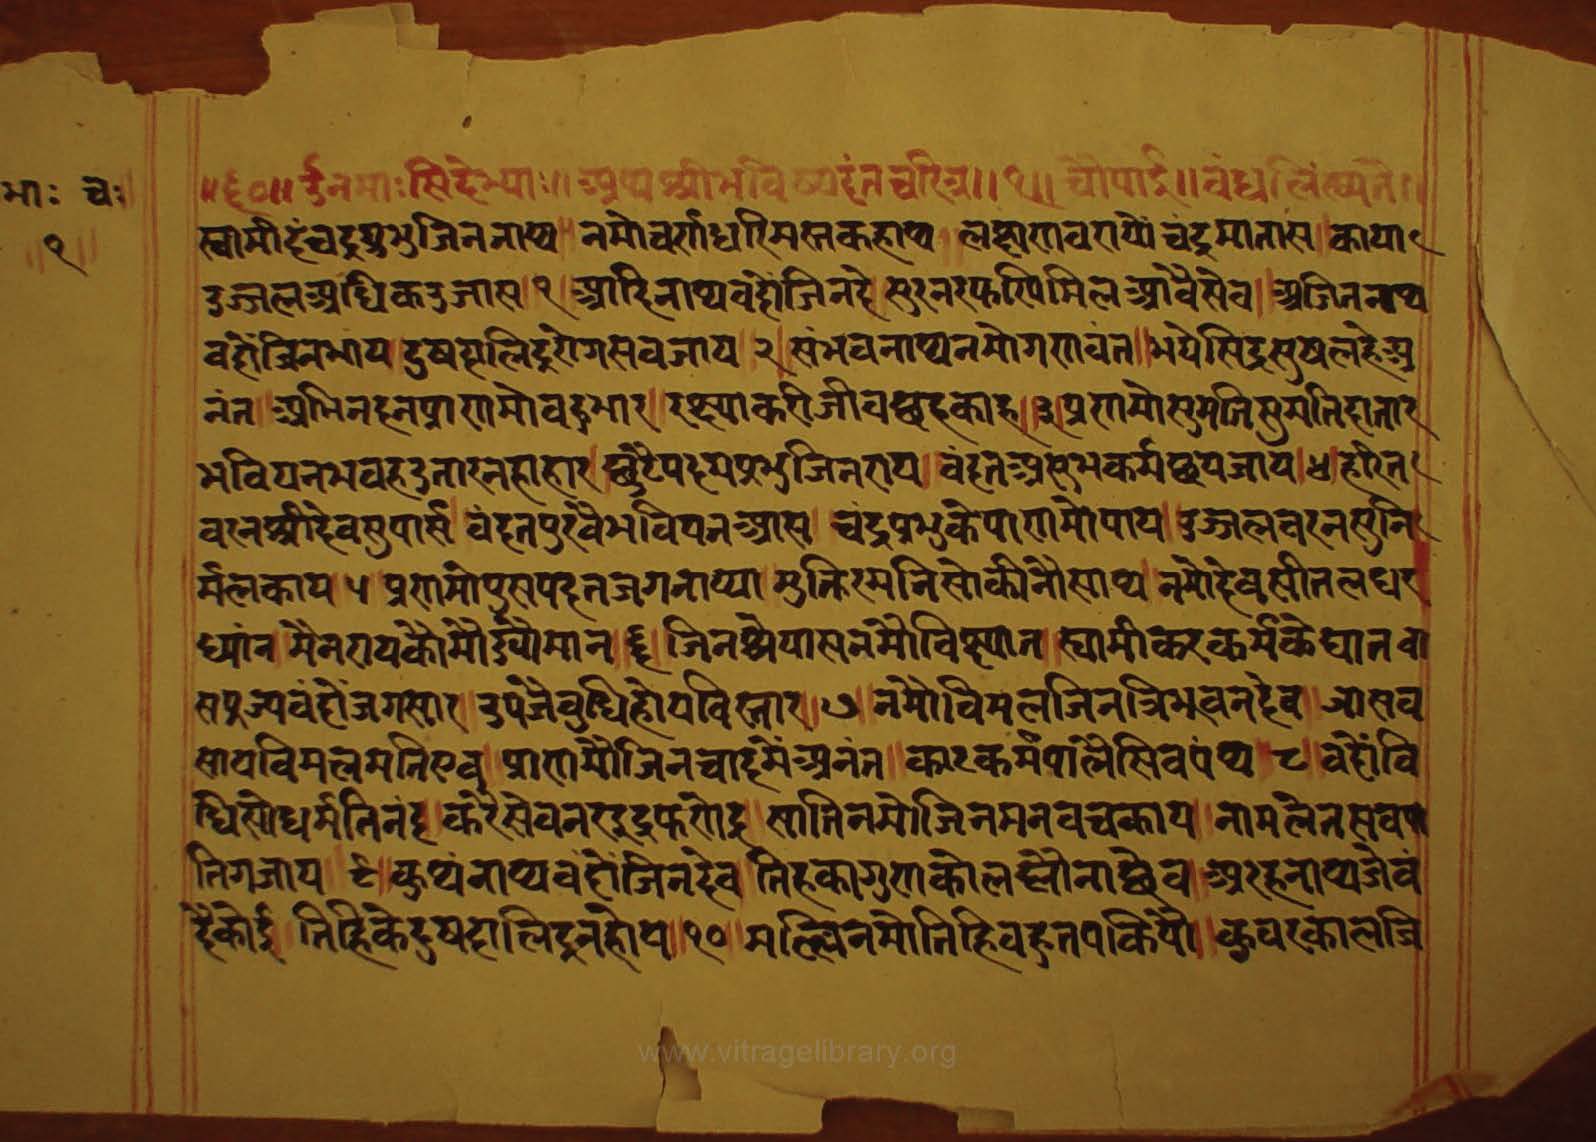 भाः चः
॥१॥
॥६०॥ र्उनमाःसिदेभ्याः॥ अथ श्रीभविष्यदंतचरित्र॥१॥ चौपाई॥ वंध लिंख्यते॥
स्वामीदंचदुप्रभुजिननाथ॥ नमोचर्णधरिमस्तकहाथ॥ लक्षणवरण्यों चंदुमातास॥ काया
उज्जलअधिकउजास॥१॥ आदिनाथवंदोंजिनदे॥ सुरनरफणिमिलआवैसेव॥ अजितनाथ
वंदोंजिनभाय॥ दुषदालिद्ररोगसवजाय॥२॥ संभवनाथनमोगणवंत॥ भयेसिद्रसुषलहेअ
नंत॥ अभिनदनप्रणमोवदुभार॥ रक्ष्याकरीजीवछहकाह॥३॥ प्रणमोसुमतिसुमतिदातार
भवियनभवहउतारनहाहार॥ छुटैपदमप्रभुजिनराय॥ वंदतअसुभकर्मछयजाय॥४॥ हरित
वरनश्रीदेवसुपार्स॥ वंदतपुरवैभवियनआस॥ चंद्रप्रभुकेपाणमोपाय॥ उज्जलवरनसुनि
र्मलकाय॥५॥ प्रणमोपुसपदतजगनाथा॥ मुक्तिरमनिसोकीनौसाथ॥ नमोदेवसीतलधर
ध्यांन॥ मैनरायकौमोर्ड्योमान॥६॥ जिनश्रेयासनमौविक्ष्यात॥ स्वामीकरकर्मकेघात॥ वा
सपुज्यवंदोंजगसार॥ उपजैवुधिहोयविस्तार॥७॥ नमोविमलजिनत्रिभवनदेव॥ आसव
सायविमलमतिएव॥ प्राणमौजिनचादमेंअनंत॥ कारकर्मपालैसिवपंथ॥८॥ वंदोंवि
धिसोधर्मतिनंद॥ करैसेवनरइदुफणेंद्र॥ सातिनमोजिनमनवचकाय॥ नामलेतसवपा
तिगजाय॥९॥ कुथंनाथवंदोंजिनदेव॥ तिहकागुणकोलह्यौनाछेव॥ अरहनाथजेवं
दैकोई॥ तिहिकेदुषदालिद्रनहोय॥१०॥ मल्लिनमोतिहिवहुतपकियौ॥ कुवरकालजि
www.vitragelibrary.org